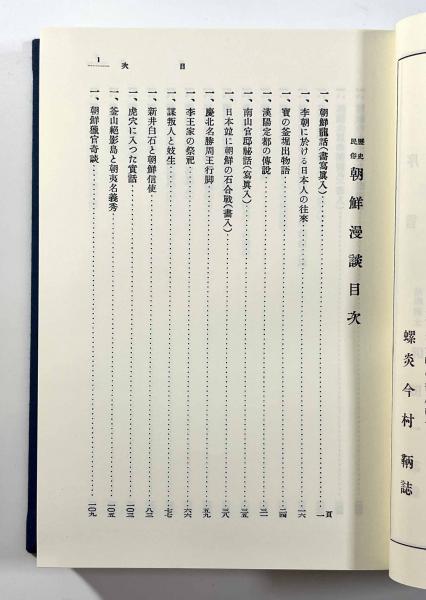 螺炎今村鞆誌
歴史民俗 朝鮮漫談目次
一、朝鮮龍話(書寫眞入)……一頁
一、李朝に於ける日本人の往來……一六
一、寶の釜堀出物語……二四
一、漢陽定都の傳說……三一
一、南山官邸秘話(寫眞入)……三五
一、日本竝に朝鮮の石合戰(書入)……三八
一、慶北名勝周王行脚……五九
一、李王家の祭祀……六六
一、謀叛人と妓生……七七
一、新井白石と朝鮮信使……八三
一、虎穴に入つた實話……一〇三
一、釜山絕影島と朝夷名義秀……一〇五
一、朝鮮獵官奇談……一〇九
目次 1